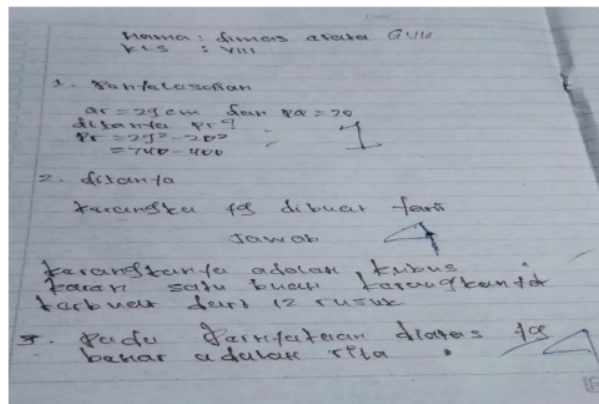 nama : dimas arata
kls : VIII
1. Panyelasaian
ar = 29 cm dan pq = 20
ditanya pr?
Pr = 29² - 20²
= 740 - 400
2. ditanya
karangka yg dibuat fani
Jawab
karangkanya adalah kubus
karan satu buah karangkanya
tarbuat dari 12 rusuk
3. Pada parnyataan diatas yg
banar adalah rita